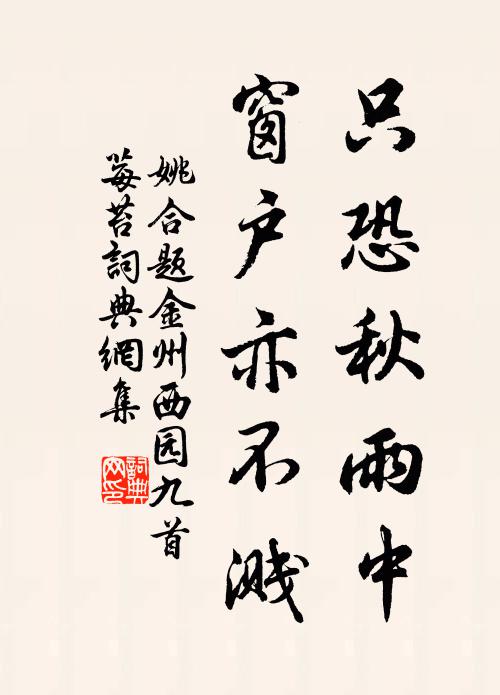 只恐秋雨中
窗户亦不溅
姚合题金州西园九首
莓苔詞典網集
詞典
网印